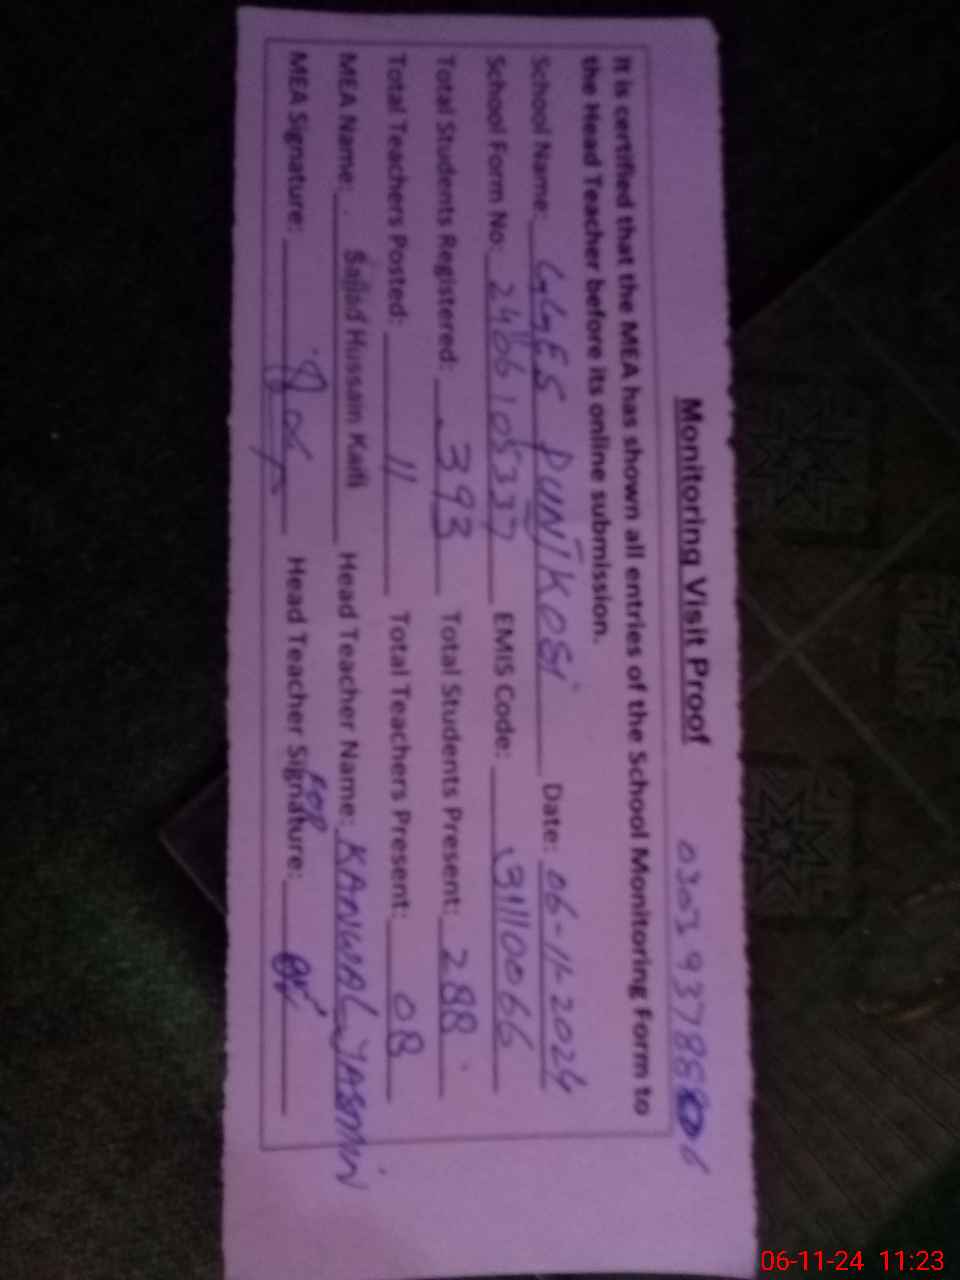 Monitoring Visit Proof
It is certified that the MEA has shown all entries of the School Monitoring Form to
the Head Teacher before its online submission.
School Name: GGES PUNIKOSI Date: 06-11-2024
School Form No: EMIS Code: 31110066
Total Students Registered: 393 Total Students Present: 288
Total Teachers Posted: 11 Total Teachers Present: 08
MEA Name: Sajjad Hussain Kaifi Head Teacher Name: KANWAL YASMIN
MEA Signature: Head Teacher Signature:
FOR
06-11-24 11:23